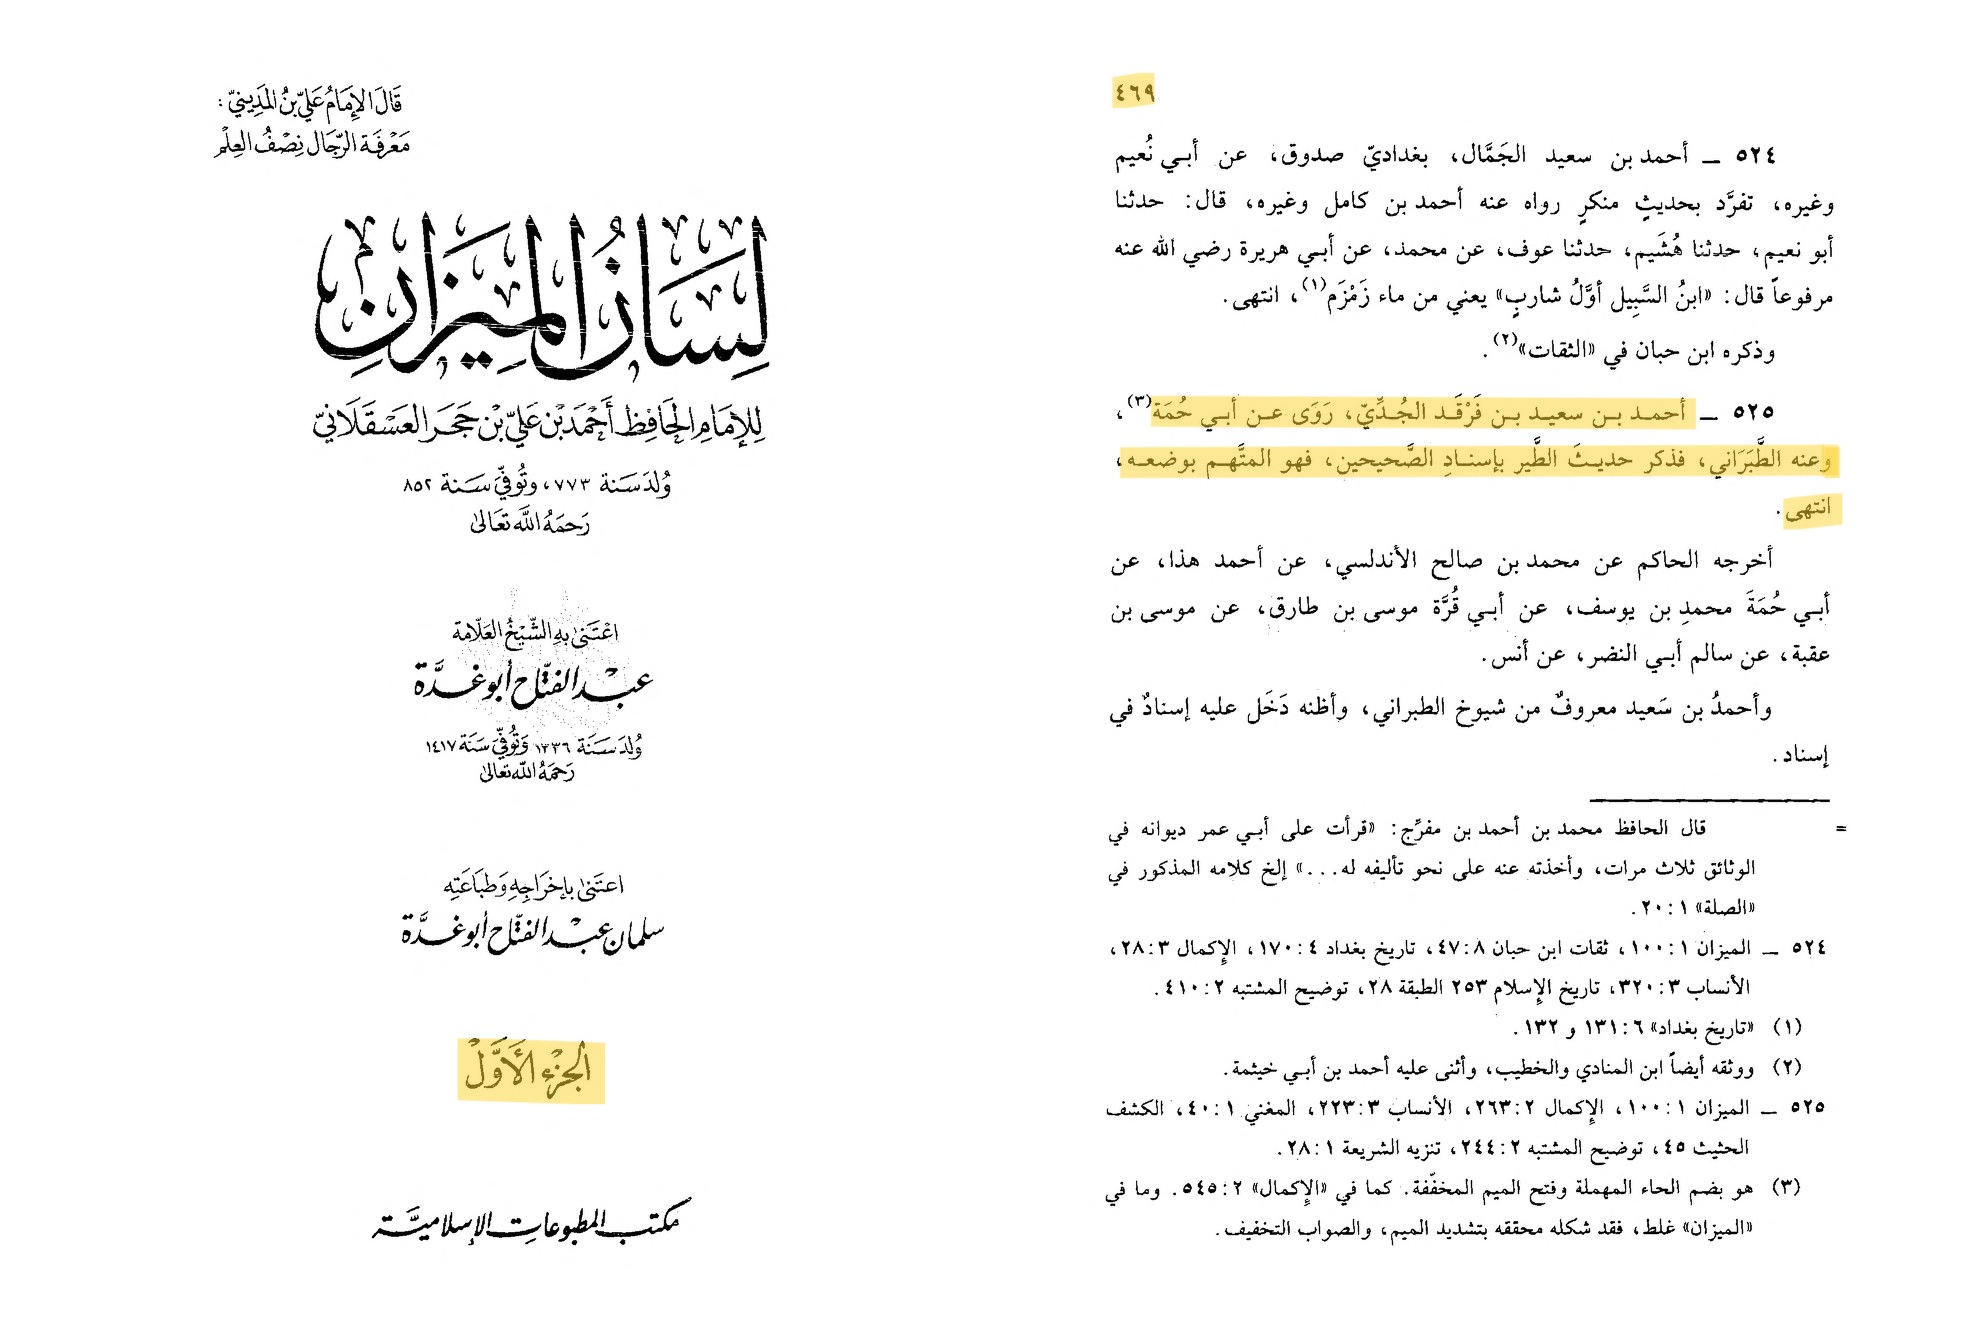 ٤٦٩
٥٢٤ ــ أحمد بن سعيد الجَمَّال، بغداديّ صدوق، عن أبي نُعيم
وغيره، تفرَّد بحديثٍ منكرٍ رواه عنه أحمد بن كامل وغيره، قال: حدثنا
أبو نعيم، حدثنا هُشَيم، حدثنا عوف، عن محمد، عن أبي هريرة رضي الله عنه
مرفوعاً قال: «ابنُ السَّبِيل أوَّلُ شاربٍ» يعني من ماء زَمْزَم(١)، انتهى.
وذكره ابن حبان في «الثقات»(٢).
٥٢٥ ــ أحمد بن سعيد بن فَرْقَد الجُدِّيّ، رَوَى عن أبي حُمَة(٣)،
وعنه الطَّبَرَاني، فذكر حديثَ الطَّير بإسنادِ الصَّحيحين، فهو المتَّهم بوضعه،
انتهى.
أخرجه الحاكم عن محمد بن صالح الأندلسي، عن أحمد هذا، عن
أبي حُمَةَ محمدِ بن يوسف، عن أبي قُرَّة موسى بن طارق، عن موسى بن
عقبة، عن سالم أبي النضر، عن أنس.
وأحمدُ بن سَعيد معروفٌ من شيوخ الطبراني، وأظنه دَخَل عليه إسنادٌ في
إسناد.
= قال الحافظ محمد بن أحمد بن مفرِّج: «قرأت على أبي عمر ديوانه في
الوثائق ثلاث مرات، وأخذته عنه على نحو تأليفه له...» إلخ كلامه المذكور في
«الصلة» ١: ٢٠.
٥٢٤ ــ الميزان ١: ١٠٠، ثقات ابن حبان ٨: ٤٧، تاريخ بغداد ٤: ١٧٠، الإكمال ٣: ٢٨،
الأنساب ٣: ٣٢٠، تاريخ الإسلام ٢٥٣ الطبقة ٢٨، توضيح المشتبه ٢: ٤١٠.
(١) «تاريخ بغداد» ٦: ١٣١ و ١٣٢.
(٢) ووثقه أيضاً ابن المنادي والخطيب، وأثنى عليه أحمد بن أبي خيثمة.
٥٢٥ ــ الميزان ١: ١٠٠، الإكمال ٢: ٢٦٣، الأنساب ٣: ٢٢٣، المغني ١: ٤٠، الكشف
الحثيث ٤٥، توضيح المشتبه ٢: ٢٤٤، تنزيه الشريعة ١: ٢٨.
(٣) هو بضم الحاء المهملة وفتح الميم المخفّفة. كما في «الإكمال» ٢: ٥٤٥. وما في
«الميزان» غلط، فقد شكله محققه بتشديد الميم، والصواب التخفيف.
قَالَ الإِمَامُ عَلِيّ بنُ المَدِينِيّ:
مَعْرِفَة الرِّجَال نِصْفُ العِلْم
لِسَانُ المِيزَانِ
لِلإِمَامِ الحَافِظ أَحْمَد بْن عَلِيّ بْن حَجَر العَسْقَلَانِيّ
وُلدَ سَنَة ٧٧٣، وتُوفِّيَ سَنة ٨٥٢
رَحمَهُ اللَّه تعَالىٰ
اعْتَنىٰ بِهِ الشَّيْخُ العَلَّامَة
عَبْد الفتَّاح أبوغُدَّة
وُلدَ سَنَة ١٣٣٦ وَتُوفِّيَ سَنَة ١٤١٧
رَحمَهُ اللَّه تعَالىٰ
اعتَنىٰ بإخرَاجِهِ وَطبَاعَتِه
سلمان عبْد الفتَّاح أبوغُدَّة
الجزْء الأَوَّلْ
مكتب المطبوعات الإسلاميَّة